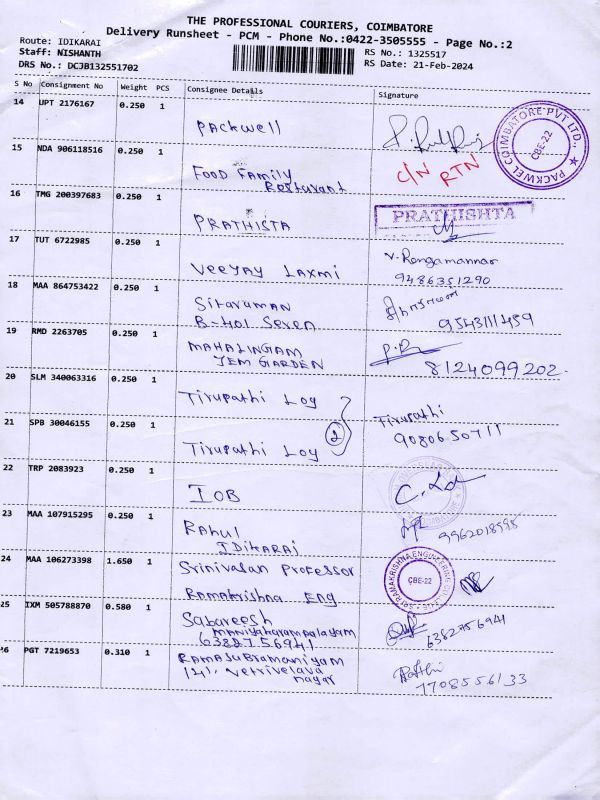 THE PROFESSIONAL COURIERS, COIMBATORE
Delivery Runsheet - PCM - Phone No.:0422-3505555 - Page No.:2
Route: IDIKARAI
Staff: NISHANTH
DRS No.: DCJB132551702
RS No.: 1325517
RS Date: 21-Feb-2024
S No Consignment No Weight PCS Consignee Details Signature
14 UPT 2176167 0.250 1
Packwell
PACKWEL COIMBATORE PVT LTD., CBE-22
15 NDA 906118516 0.250 1
Food Family
Resturant
C/N RTN
16 TMG 200397683 0.250 1
PRATHISTA
PRATHISHTA
17 TUT 6722985 0.250 1
Veeyay Laxmi
V. Rengamannar
9486351290
18 MAA 864753422 0.250 1
Sitaraman
B-401 Seven
9543111459
19 RMD 2263705 0.250 1
MAHALINGAM
JEM GARDEN
8124099202.
20 SLM 340063316 0.250 1
Tirupathi Log
21 SPB 30046155 0.250 1
Tirupathi Log
2
Tirupathi
90806 50711
22 TRP 2083923 0.250 1
IOB
23 MAA 107915295 0.250 1
Rahul
IDIKARAI
9962018595
24 MAA 106273398 1.650 1
Srinivasan Professor
Ramakrishna Eng
SRI RAMAKRISHNA ENGINEERING COLLEGE CBE-22
25 IXM 505788870 0.580 1
Sabareesh
maniyakarampalayam
6382756941
6382756941
26 PGT 7219653 0.310 1
RAMASUBRAMANIYAM
121, Vetrivelava
nagar
7708556133